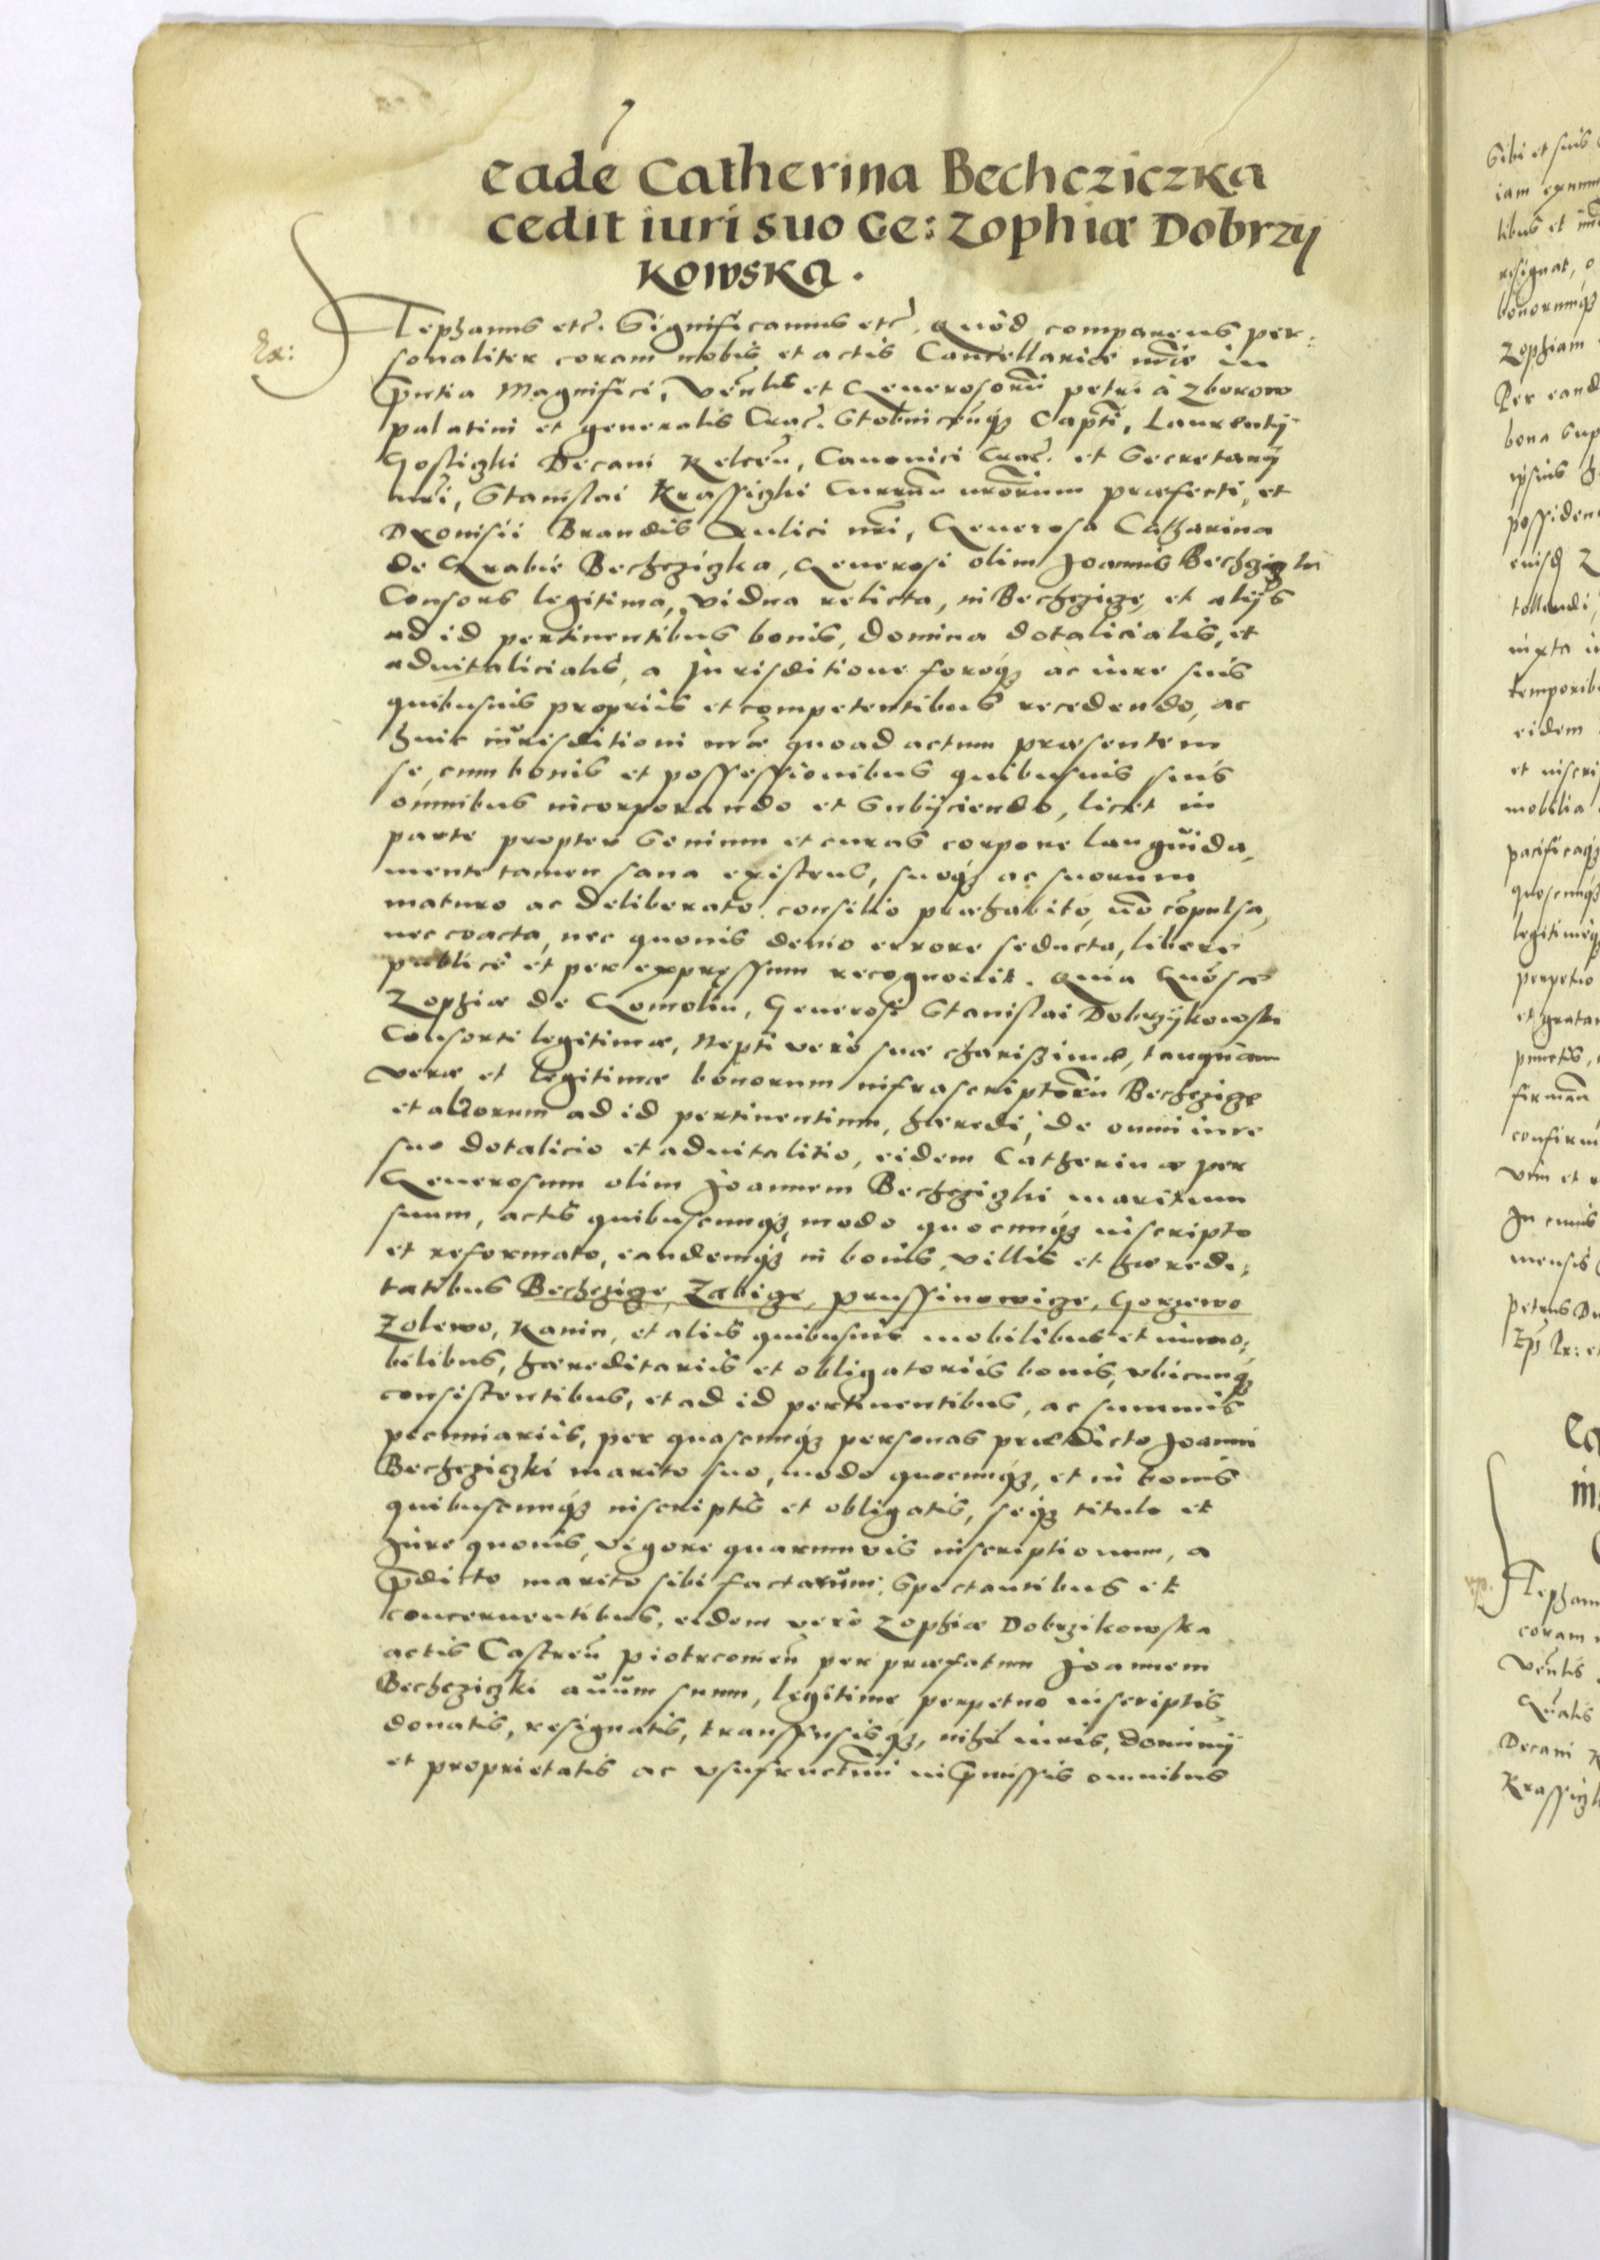 Eadē Catherina Bechcziczka
cedit iuri suo Ge: Zophiæ Dobrzy
kowska.
Ex:
Stephanus etc. Significamus etc. Quòd comparens per:
sonaliter coram nobis et actis Cancellariæ nr̃æ in
pn̄tia Magnifici, Ven̄lis et Generosorū Petri à Zborow
palatini et generalis Crac. Stobnicen̄q; Capti, Laurentij
Gosliczki Decani Kelcen̄, Canonici Crac. et Secretarij
nr̃i, Stanislai Krassiczki Curruū nr̃orum præfecti, et
Dyonisii Brandis Aulici nr̃i, Generosa Catharina
de Grabie Bechcziczka, Generosi olim Joannis Bechcziczki
Consors legitima, vidua relicta, in Bechczicze et alijs
ad id pertinentibus bonis, domina dotalicialis, et
aduitalicialis, a Jurisditione foroq; ac iure suis
quibusuis proprijs et competentibus recedendo, ac
huic iurisditioni nr̃æ quoad actum præsentem
se, cum bonis et possessionibus quibusuis suis
omnibus incorporando et subijciendo, licet in
parte propter senium et curas corpore languida,
mente tamen sana existens, suoq; ac suorum
maturo ac deliberato consilio præhabito, nō cōpulsa,
nec coacta, nec quouis deuio errore seducta, liberè
publicè et per expressum recognouit. Quia Gnosæ
Zophiæ de Gomolin, Generosi Stanislai Dobrzykowski
Consorti legitimæ, Nepti verò suæ charissimæ, tanquam
veræ et legitimæ bonorum infrascriptorū Bechczicze
et aliorum ad id pertinentium, hæredi, de omni iure
suo dotalicio et aduitalitio, eidem Catherinæ per
Generosum olim Joannem Bechcziczki maritum
suum, actis quibuscunq; modo quocunq; inscripto
et reformato, eandemq; in bonis, villis et hæredi:
tatibus Bechczicze, Zabicze, Prussinowicze, Gorzewo
Zolewo, Kanin, et alijs quibusuis mobilibus et immo:
bilibus, hæreditarijs et obligatorijs bonis, vbicunq;
consistentibus, et ad id pertinentibus, ac summis
pecuniarijs, per quascunq; personas prædicto Joanni
Bechcziczki marito suo, modo quocunq;, et in bonis
quibuscunq; inscriptis et obligatis, seq; titulo et
Jure quouis, vigore quarumuis inscriptionum, a
p̄dicto marito sibi factarum, spectantibus et
concernentibus, eidem verò Zophiæ Dobrzikowska
actis Castren̄ Piotrcouien̄ per præfatum Joannem
Bechcziczki auum suum, legitimè perpetuo inscriptis
donatis, resignatis, transfusisq;, nihil iuris, dominij
et proprietatis ac vsufructuū in p̄missis omnibus